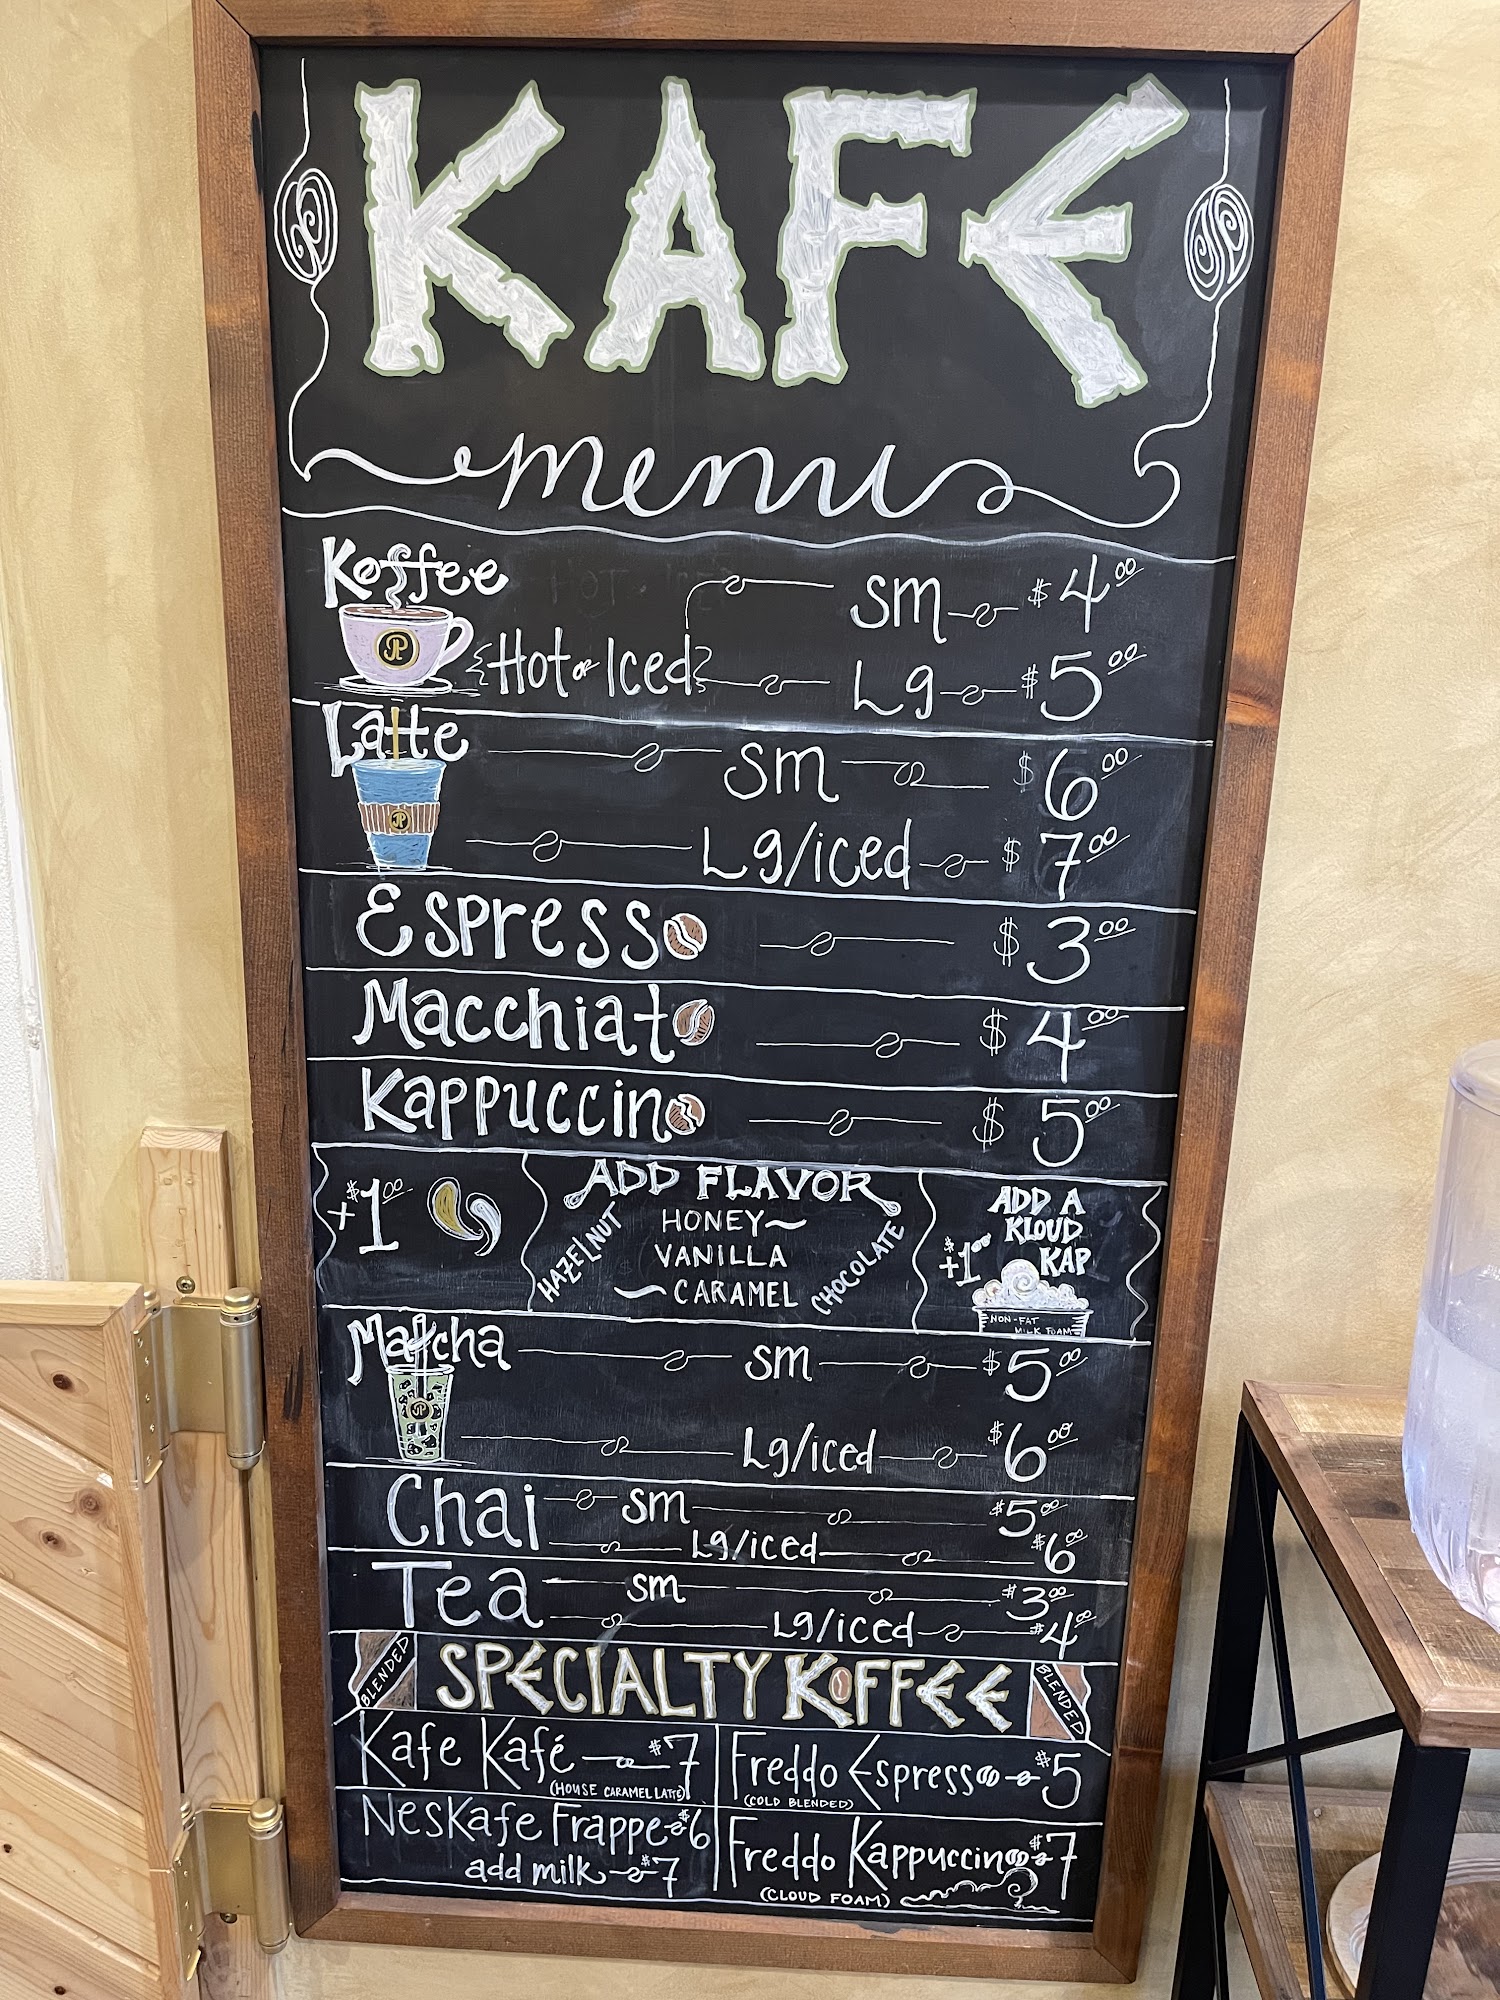 KAFE
menu
Koffee
Hot or Iced
sm $4.00
Lg $5.00
JP
Latte sm $6.00
Lg/iced $7.00
JP
Espresso $3.00
Macchiato $4.00
Kappuccino $5.00
+$1.00
ADD FLAVOR
HAZELNUT
HONEY
VANILLA
CARAMEL
CHOCOLATE
ADD A
KLOUD
+$1.00 KAP
NON-FAT
MILK FOAM
Matcha sm $5.00
Lg/iced $6.00
JP
Chai sm $5.00
Lg/iced $6.00
Tea sm $3.00
Lg/iced $4.00
BLENDED SPECIALTY KOFFEE BLENDED
Kafe Kafé $7
(HOUSE CARAMEL LATTE)
Neskafe Frappe $6
add milk $7
Freddo Espresso $5
(COLD BLENDED)
Freddo Kappuccino $7
(CLOUD FOAM)